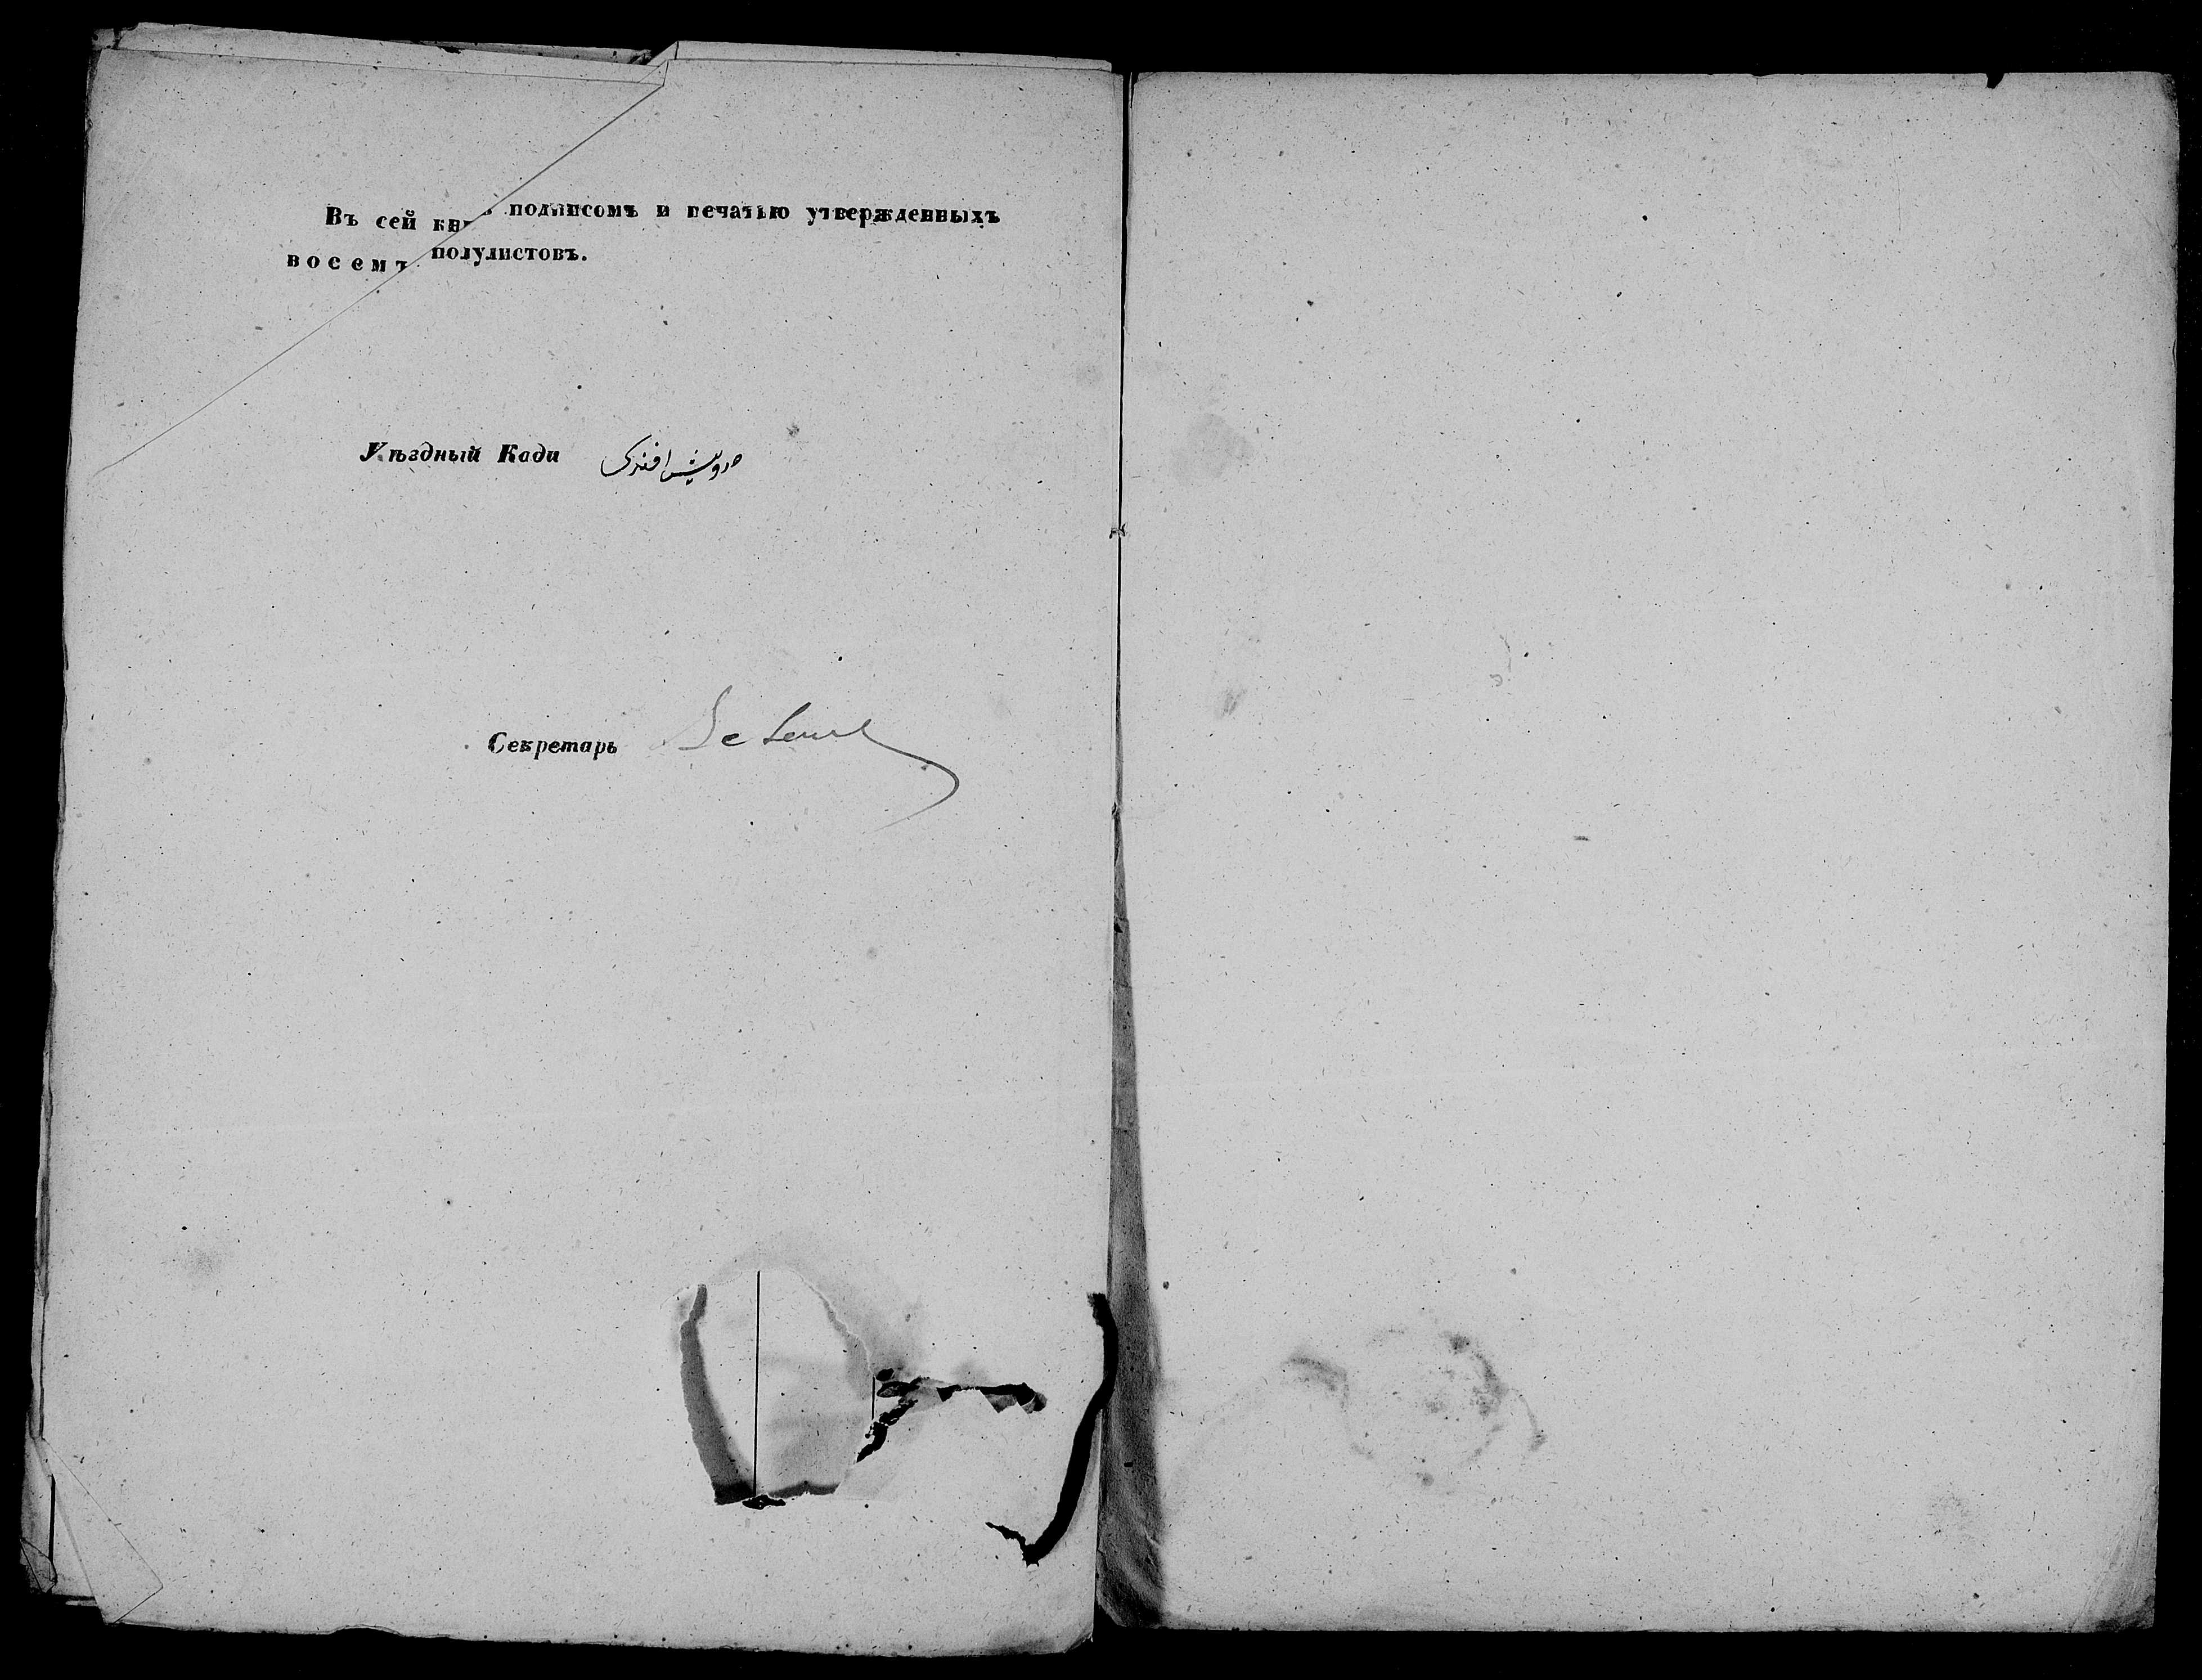 Въ сей кн подписомъ и печатью утвержденныхъ
восемъ полулистовъ.
Уѣздный Кади درويش افندى
Секретарь